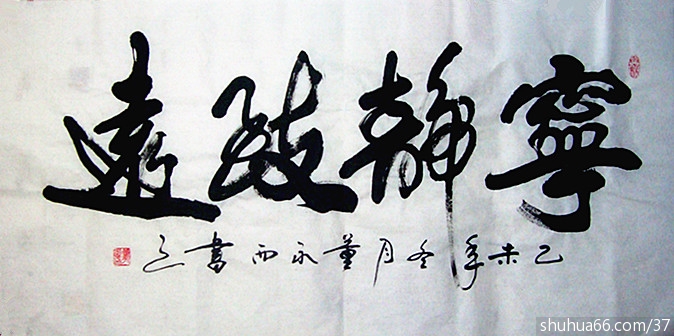 寧靜致遠
乙未年冬月董永西書之
shuhua66.com/37